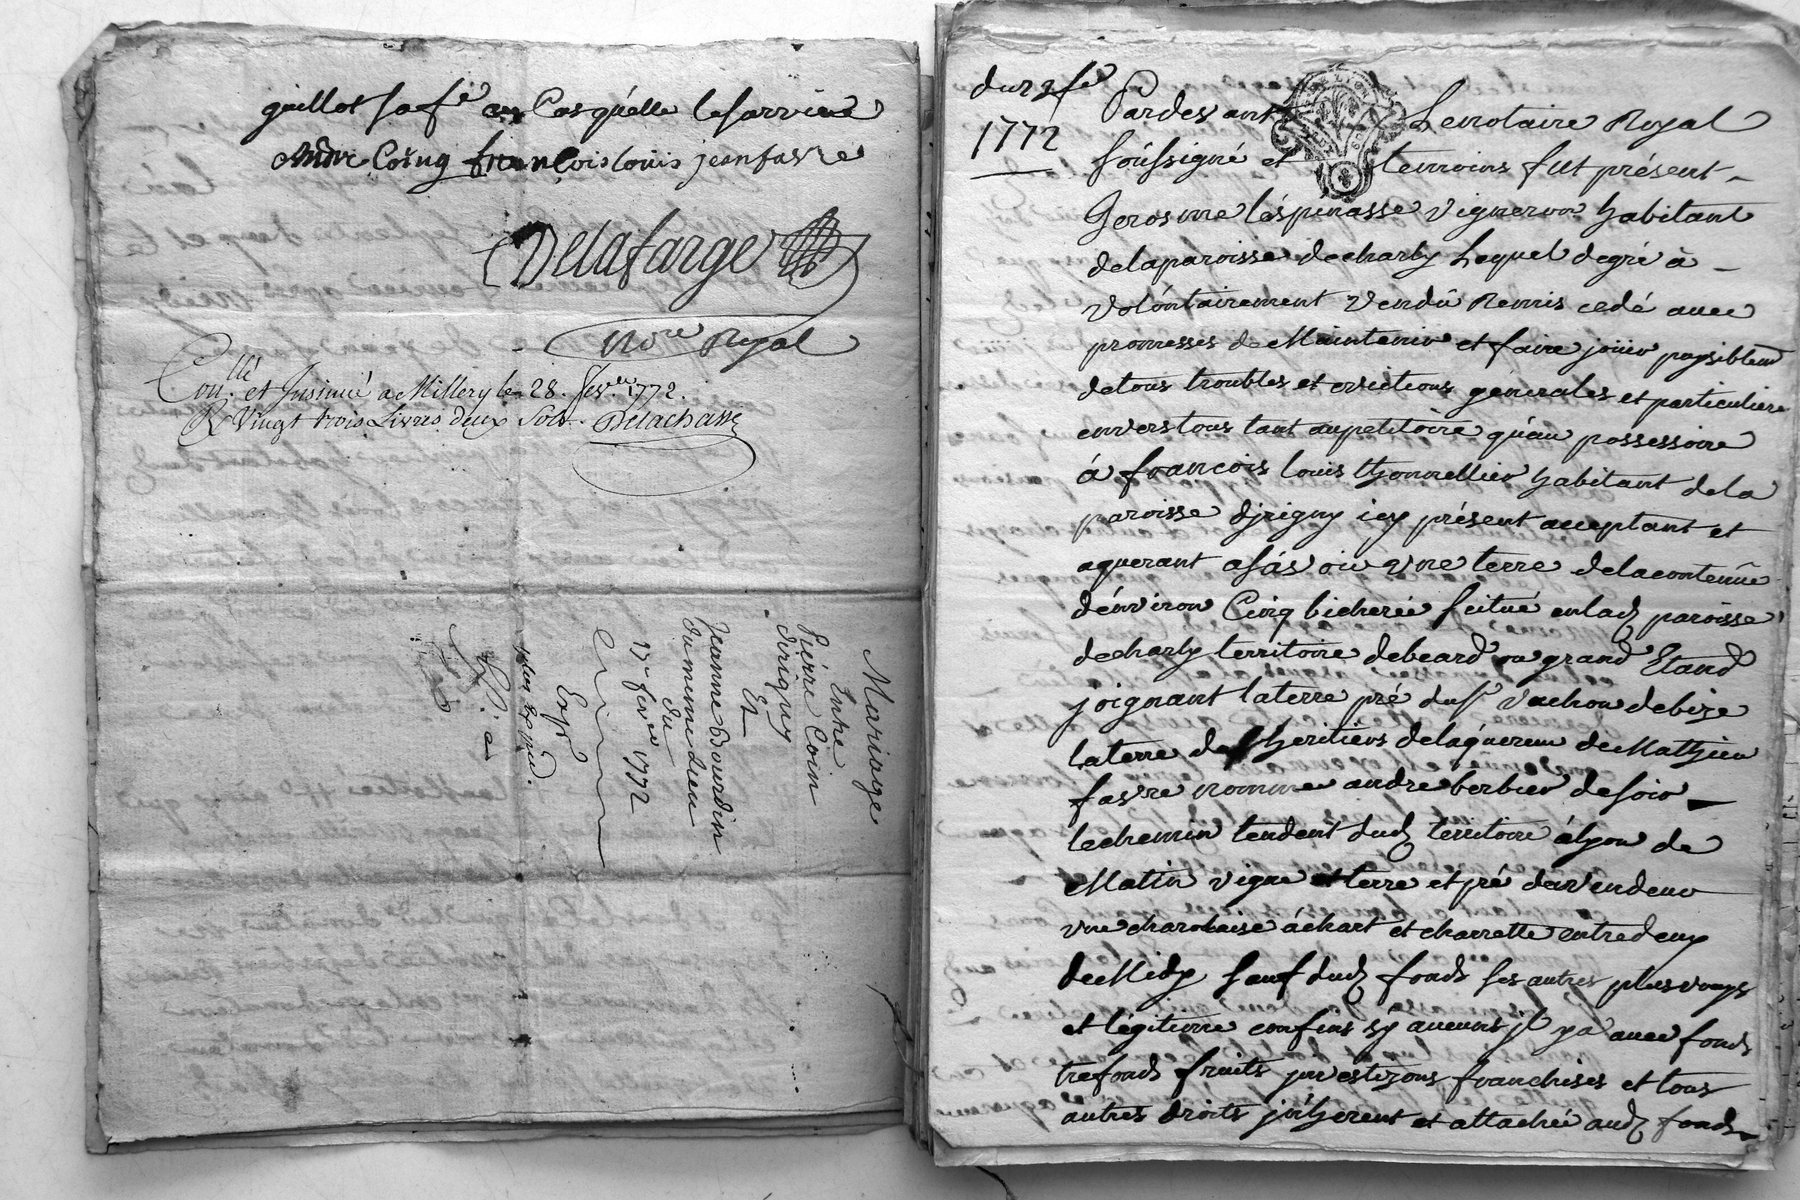 guillot jafé Casquélle lafarriere
Andre Coing françois louis jean favre
Delafarge
No.re Royal
Con.llé et Insinué a Millery le 28. fev.er 1772.
R. Vingt trois Livres deux Sols. Delachasse
Mariage
Entre
Pierre Coin
dirigny
Et
Jeanne Bourdin
du meme lieu
du
fevr 1772
Exp.
du
1772
Pardevant Le notaire Royal
soussigné et temoins fut présent
Jerosme léspinasse vigneron habitant
delaparoisse decharly Lequel degré à
volontairement vendû remis cedé avec
promesses de Maintenir et faire joüir paysiblem
detous troubles et evictions génerales et particuliere
envers tous tant aupetitoire quáu possessoire
á francois louis thonnellier habitant dela
paroisse djrigny icy présent acceptant et
aquerant asásvoir une terre delacontenüe
dénviron Cinq bicherée scitué enlad paroisse
decharly territoire debeard ou grand Etand
joignant laterre pré du sr vachon debize
laterre des heritiers delaquereur de Mathieu
favre nomme andre berbier desoir
lechemin tendent dud territoire ályon de
Matin vigne et terre et pré
une charoisaise áchart et charrette entredeux
deMidy sauf dud fonds ses autres plus vrays
et légitime confins sy aucuns jl ya avec fonds
trefonds fruits jnvestizons franchises et tous
autres droits jnhérent et attachée aud fonds